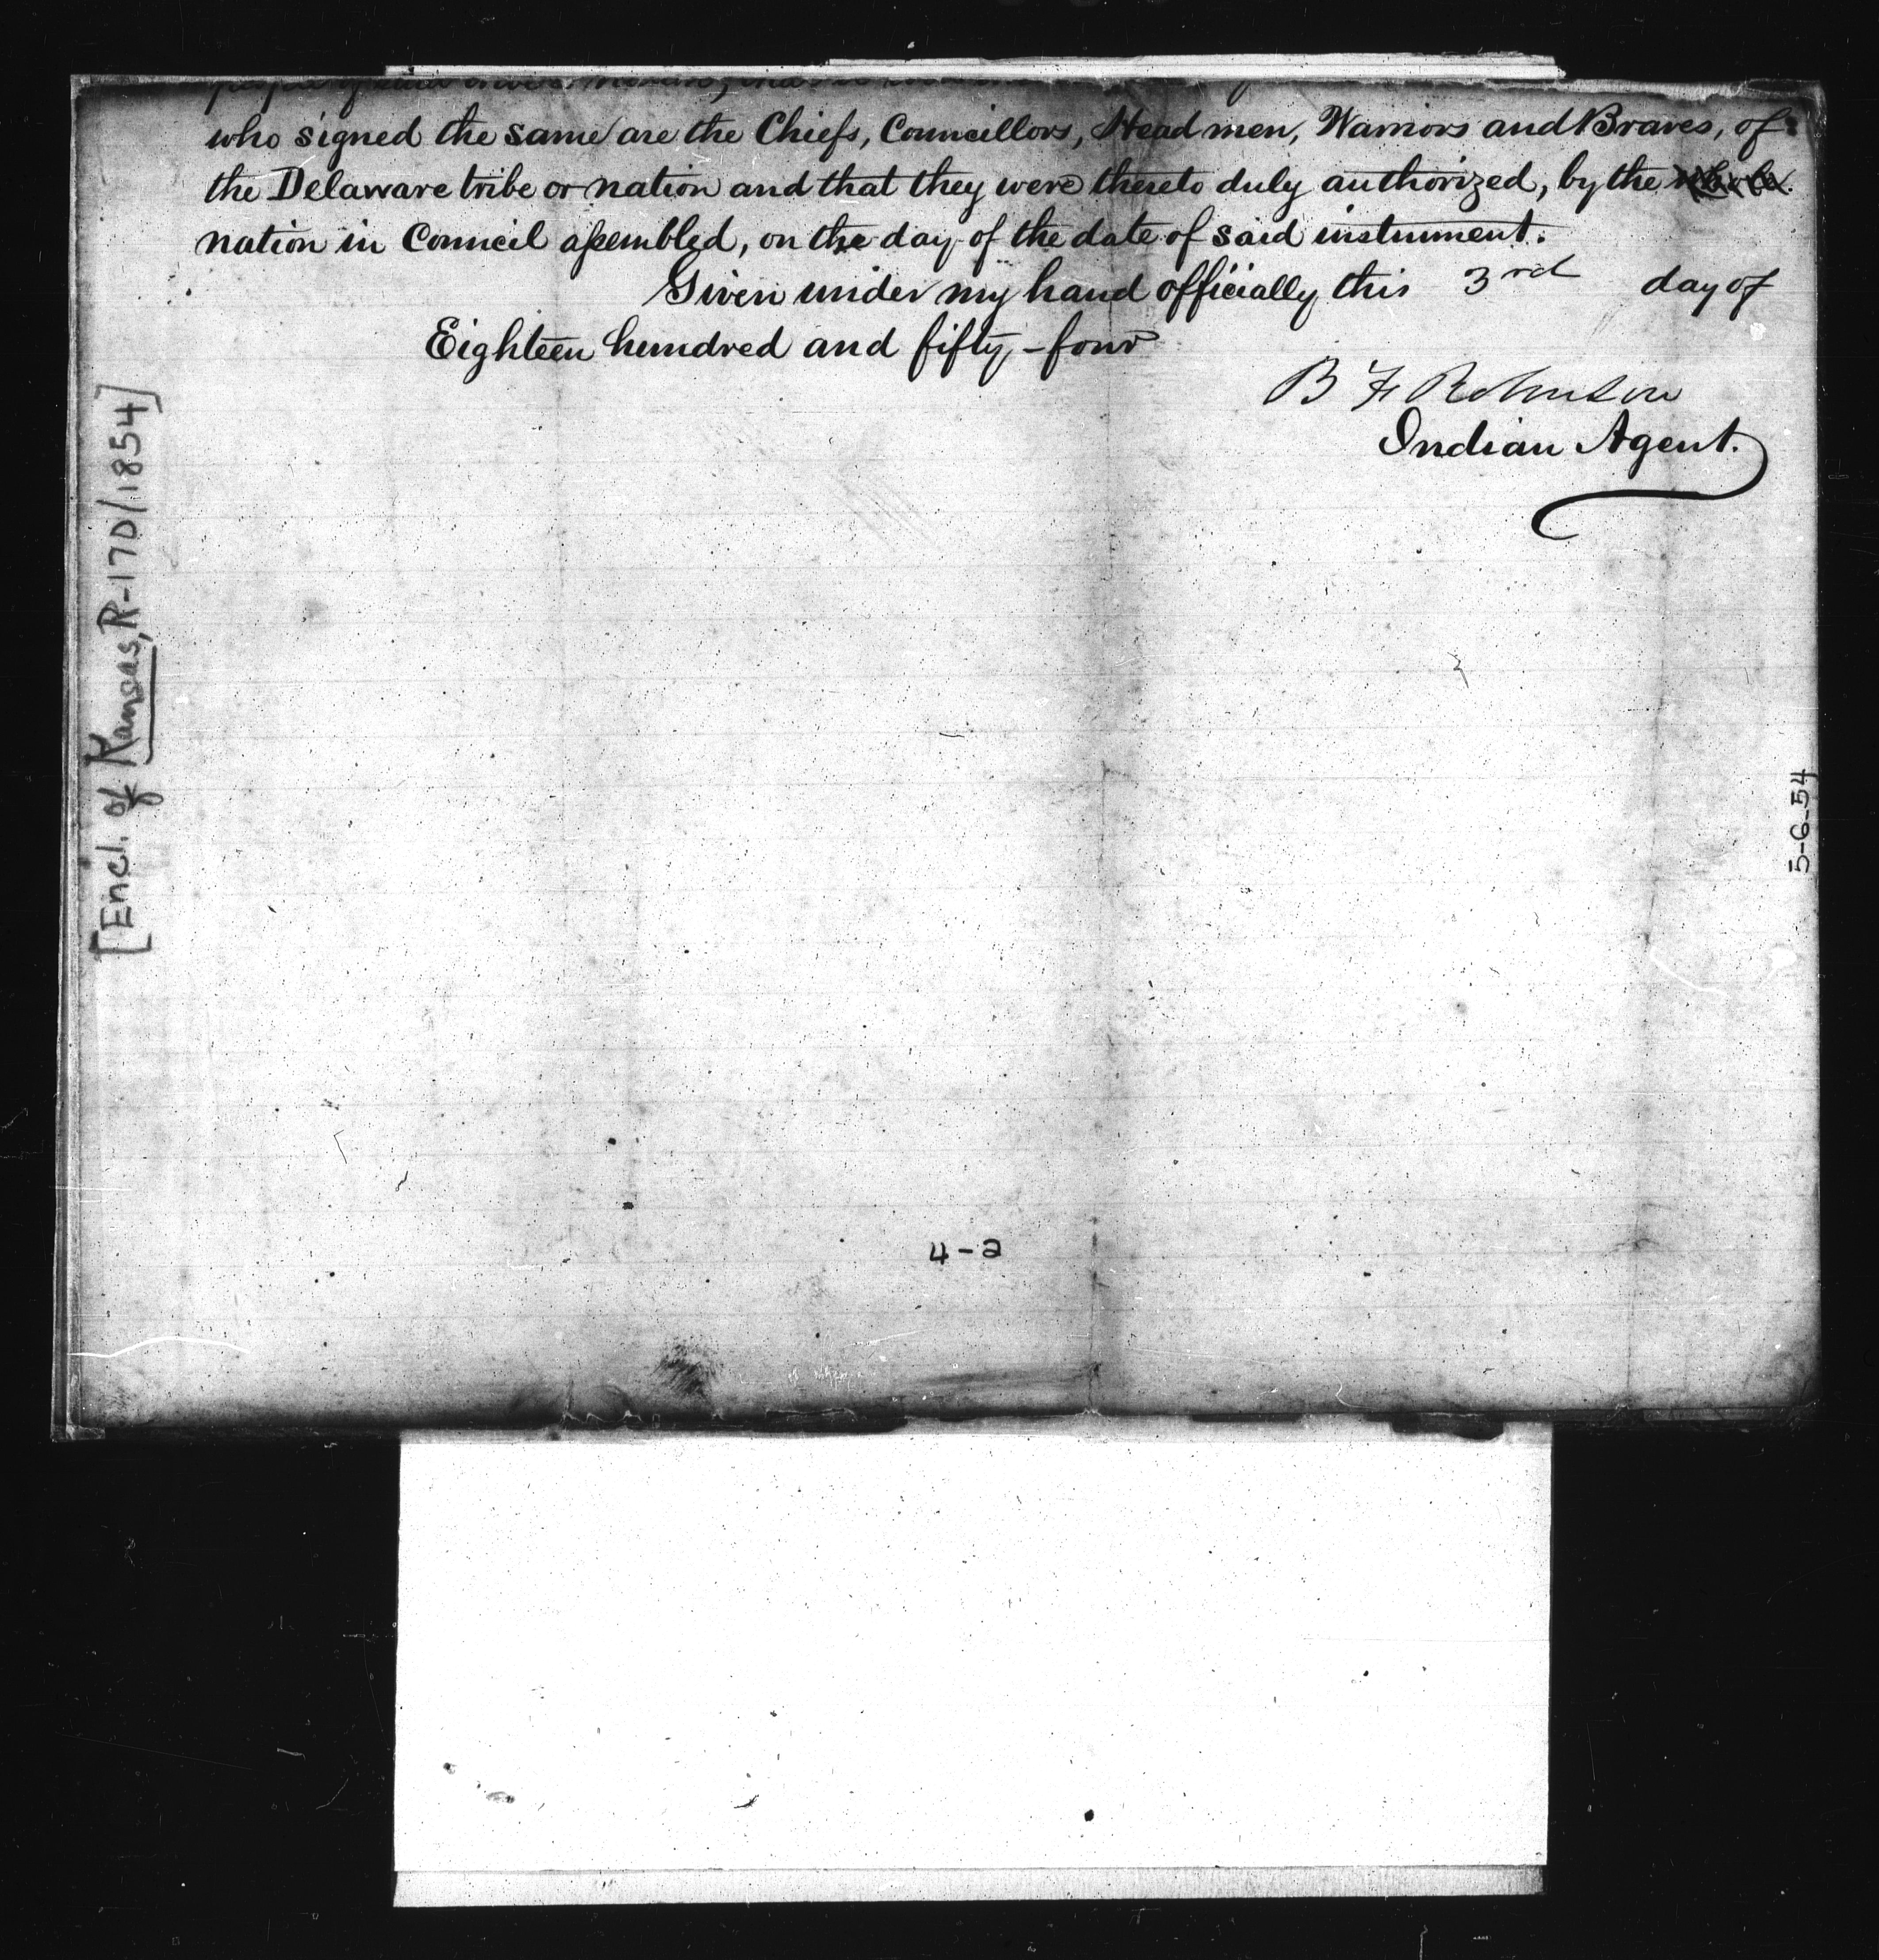 people of said
who signed the same are the Chiefs, Councillors, Head men, Warriors and Braves, of
the Delaware tribe or nation and that they were thereto duly authorized, by the
nation in Council assembled, on the day of the date of said instrument.
Given under my hand officially this 3rd day of
Eighteen hundred and fifty-four
B F Robinson
Indian Agent.
[Encl. of Kansas, R-170/1854]
5-6-54
4-2